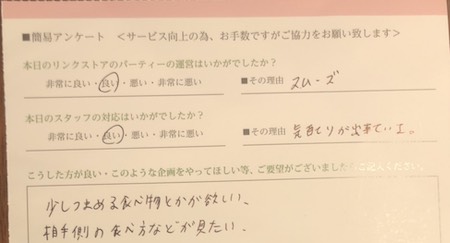 ■簡易アンケート <サービス向上の為、お手数ですがご協力をお願い致します>
本日のリンクストアのパーティーの運営はいかがでしたか?
非常に良い・良い・悪い・非常に悪い ■その理由 スムーズ
本日のスタッフの対応はいかがでしたか?
非常に良い・良い・悪い・非常に悪い ■その理由 気配りが出来ている。
こうした方が良い・このような企画をやってほしい等、ご要望がございましたらご記入ください
少しつまめる食べ物とかが欲しい、
相手側の食べ方などが見たい、